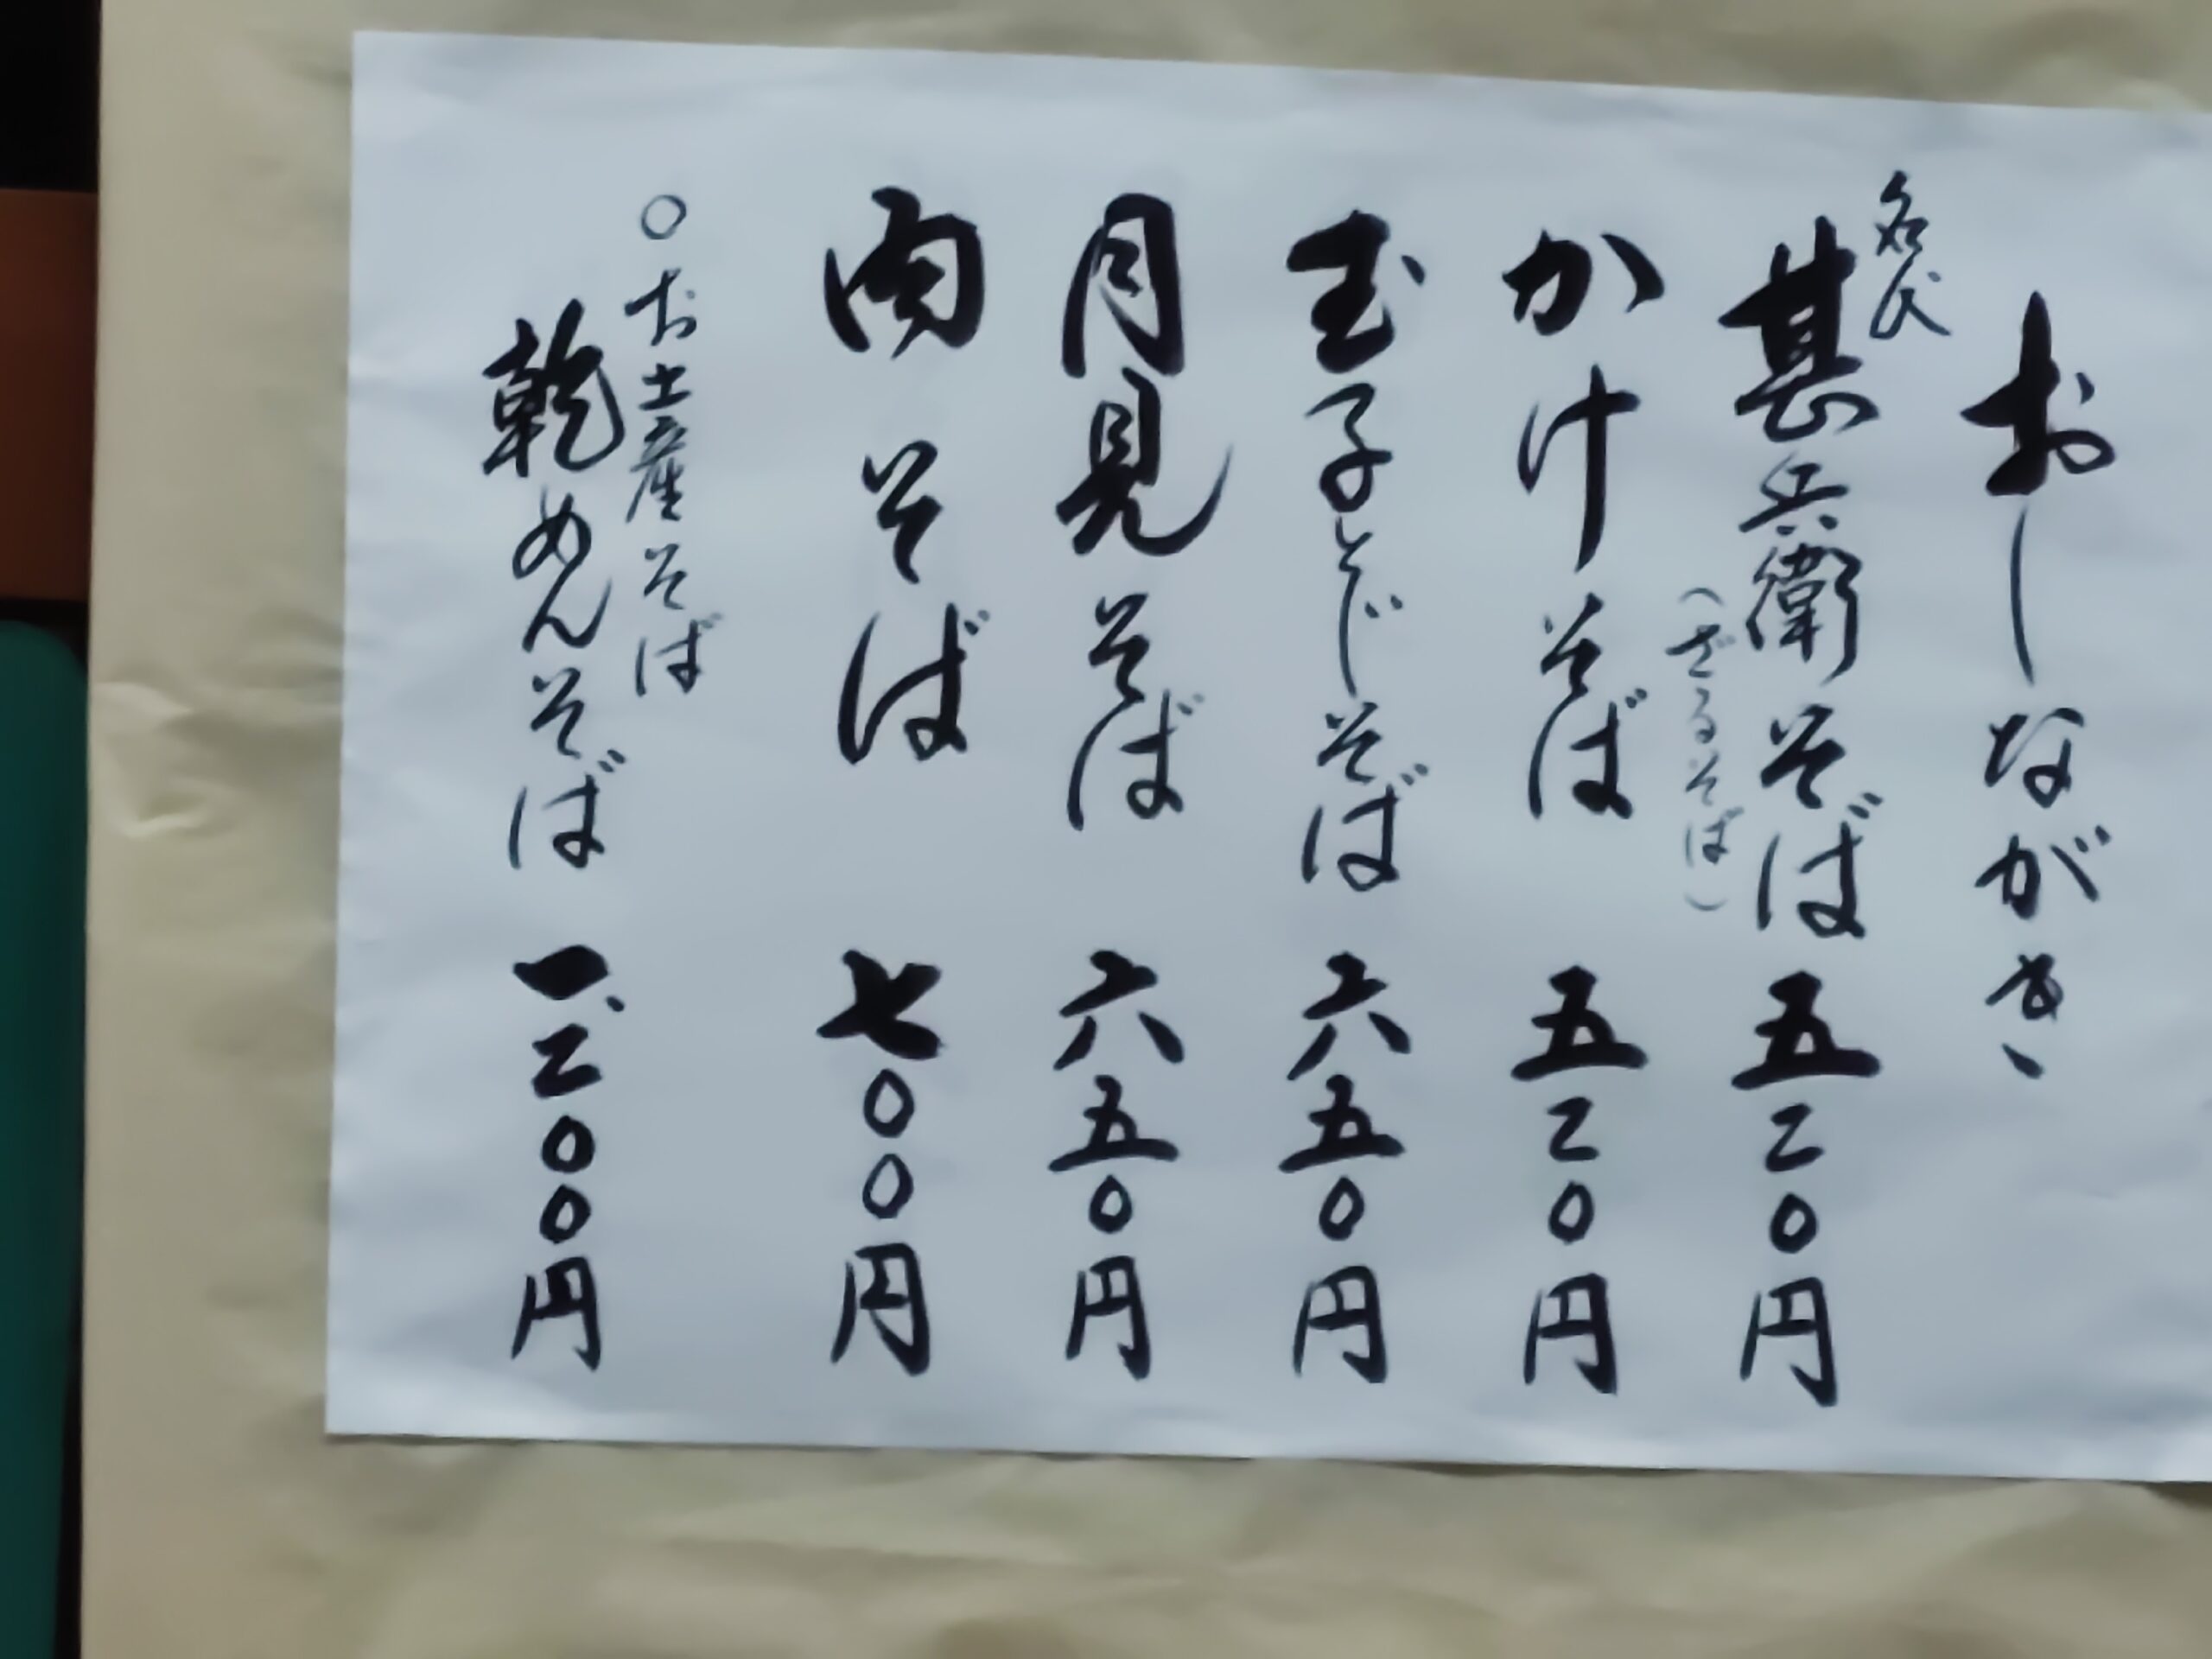 おしながき
名代
甚兵衛そば 五二〇円
(ざるそば)
かけそば 五二〇円
玉子とじそば 六五〇円
月見そば 六五〇円
肉そば 七〇〇円
○お土産そば
乾めんそば 一、二〇〇円